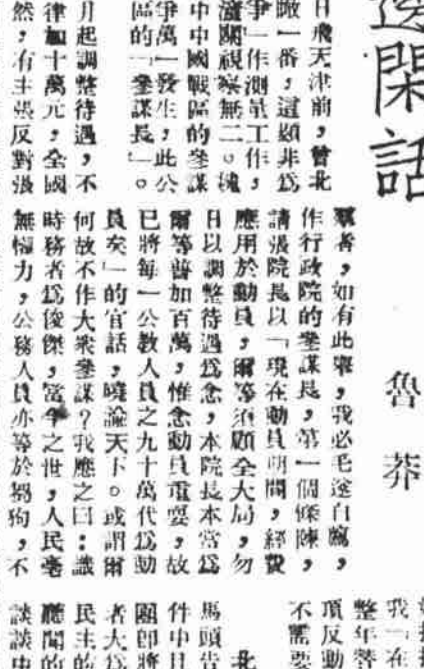 閑話
魯莽
日飛天津前，曾北
瞰一番，這顯非爲
爭」作測量工作，
潼關視察無二。
中中國戰區的參謀
爭萬一發生，此公
區的「參謀長」。
月起調整待遇，不
律加十萬元，全國
然，有主張反對張
者，如有此事，我必毛遂自薦，
作行政院的參謀長，第一個條陳，
請張院長以「現在動員期間，經費
應用於動員，爾等須顧全大局，勿
日以調整待遇爲念，本院長本當爲
爾等普加百萬，惟念動員重要，故
已將每一公教人員之九十萬代爲動
員矣」的官話，曉諭天下。或謂爾
何故不作大衆參謀？我應之曰：識
時務者爲俊傑，當今之世，人民毫
無權力，公務人員亦等於芻狗，不
我一在
整年
頂反動
不需要
北
馬頭告
件中日
團即將
者大爲
民主的
聽聞的
談談中